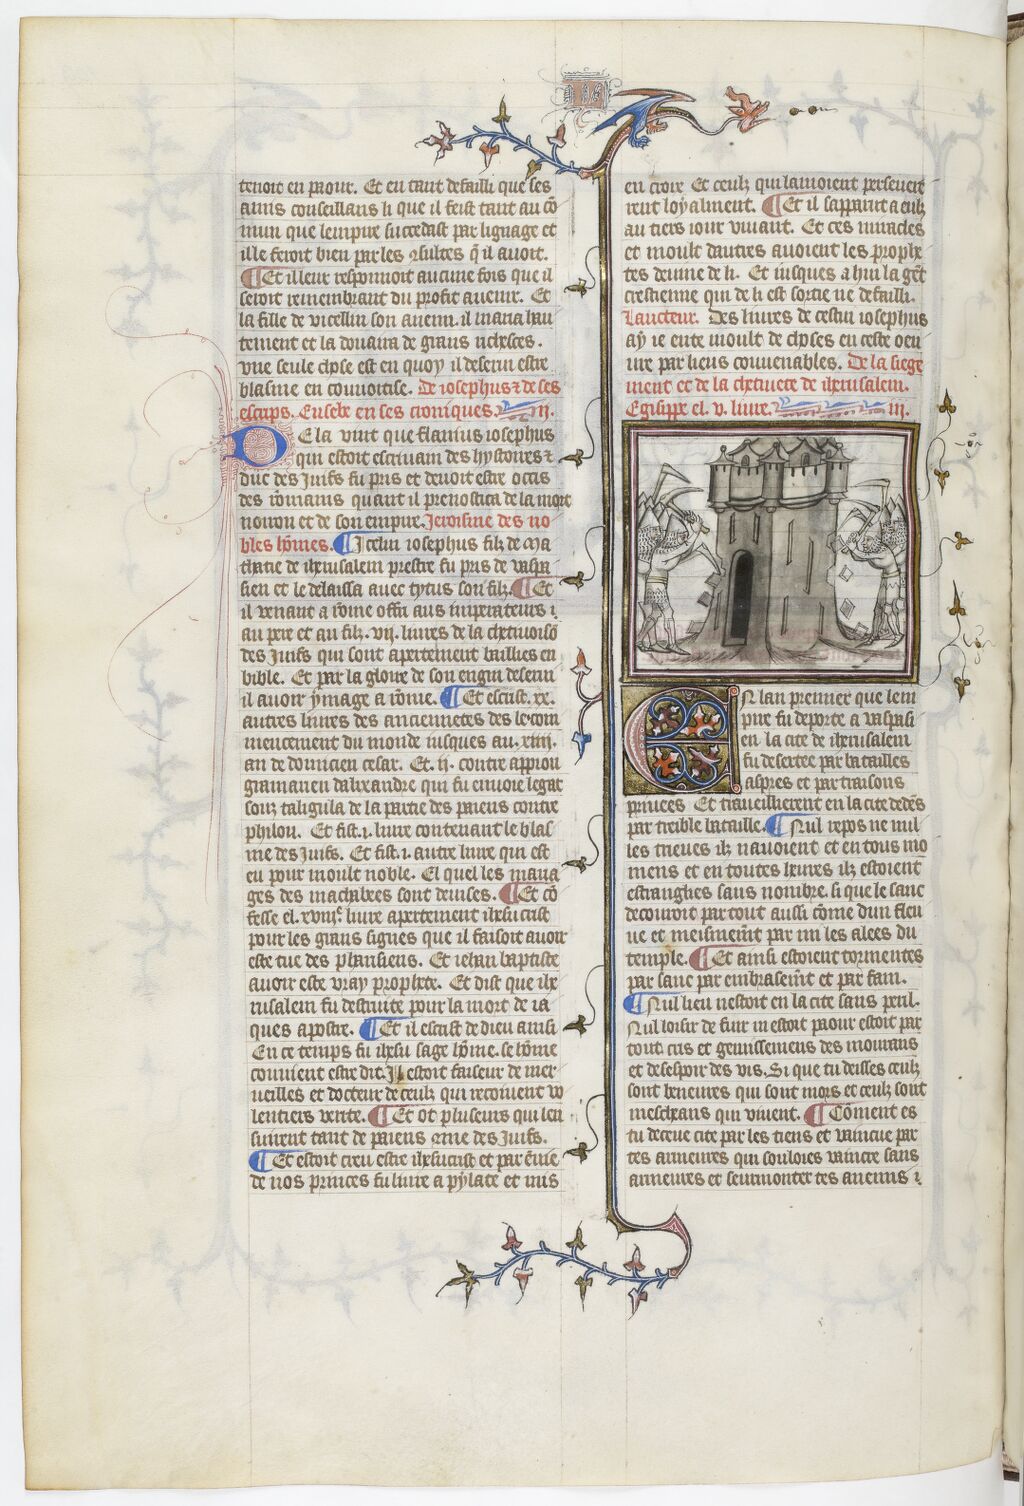 tenoit en paour. Et en tant defailli que ses
amis conseillans li que il feist tant au cō
mun que lempire succedast par lignage et
ille feroit bien par les q̄ il auoit.
¶ Et il leur responnoit aucune fois que il
seroit remembrant du profit auenir. Et
la fille de vitellin son anemi. il maria hau
tement et la douaira de grans richeses.
vne seule chose est en quoy il deserui estre
blasme en couuoitise. De iosephus ⁊ de ses
escrips. Eusebe en ses croniques. II.
De la vint que flauius iosephus
qui estoit escriuain des hystoires ⁊
duc des Juifs fu pris et deuoit estre occis
des rōmains quant il prenostica de la mort
noiron et de son empire. Jeroisme des no
bles hōmes. ¶ Icelui iosephus filz de Ma
thatie de iherusalem prestre fu pris de vaspa
sien et le delaissa auec tytus son filz. ¶ Et
il venant a rōme offri aus imperateurs i.
au pere et au filz. vij. liures de la chetiuoisō
des Juifs qui sont apertement baillies en
bible. Et par la gloire de son engin deserui
il auoir ymage a rōme. ¶ Et escrist .xx.
autres liures des anciennetes des le com
mencement du monde iusques au .xiiii.
an de domicien cesar. Et .ii. contre appion
gramarien dalixandre qui fu enuoie legat
souz caligula de la partie des paiens contre
philon. Et fist .i. liure contenant le blas
me des Juifs. Et fist .i. autre liure qui est
eu pour moult noble. El quel les maria
ges des machabees sont deuises. ¶ Et cō
fesse el .xviii.e liure apertement ihesucrist
pour les grans signes que il faisoit auoir
este tue des pharisiens. Et iehan baptiste
auoir este vray prophete. Et dist que ihe
rusalem fu destruite pour la mort de ia
ques apostre. ¶ Et il escrist de dieu ainsi
En ce temps fu ihesu sage hōme. se hōme
conuient estre dit. Il estoit faiseur de mer
ueilles et docteur de ceulz qui recoiuent vo
lentiers verite. ¶ Et ot pluseurs qui len
suiuent tant de paiens cōme des Juifs.
¶ Et estoit creu estre ihesucrist et par enuie
de nos princes fu liure a pylate et mis
en croix Et ceulz qui lamoient perseuere
rent loyalment. ¶ Et il sapparut a eulz
au tiers iour viuant. Et ces miracles
et moult dautres auoient les prophe
tes deuine de li. Et iusques a hui la gēt
crestienne qui de li est sortie ne defailli.
Lauteur. Des liures de cestui iosephus
ay ie ente moult de choses en ceste oeu
ure par lieus conuenables. De la siege
ment et de la chetiuete de iherusalem.
Egisippe el .v. liure. III.
En lan premier que lem
pire fu deporte a vaspasi
en la cite de iherusalem
fu desertee par batailles
aspres et par traisons
princes Et traueillierent en la cite dedēs
par terrible bataille. ¶ Nul repos ne nul
les trieues ilz nauoient et en tous mo
mens et en toutes heures ilz estoient
estranglies sans nombre. si que le sanc
decouroit par tout aussi cōme dun fleu
ue et meismemēt par mi les alees du
temple. ¶ Et ainsi estoient tormentes
par sanc par embrasemēt et par fam.
¶ Nul lieu nestoit en la cite sans peril.
Nul loisir de fuir ni estoit paour estoit par
tout cris et gemissemens des mourans
et desespoir des vis. Si que tu deisses ceulz
sont beneures qui sont mors et ceulz sont
mescheans qui viuent. ¶ Cōment es
tu deceue cite par les tiens et vaincue par
tes armeures qui souloies vaincre sans
armeures et seurmonter tes anemis ⁊